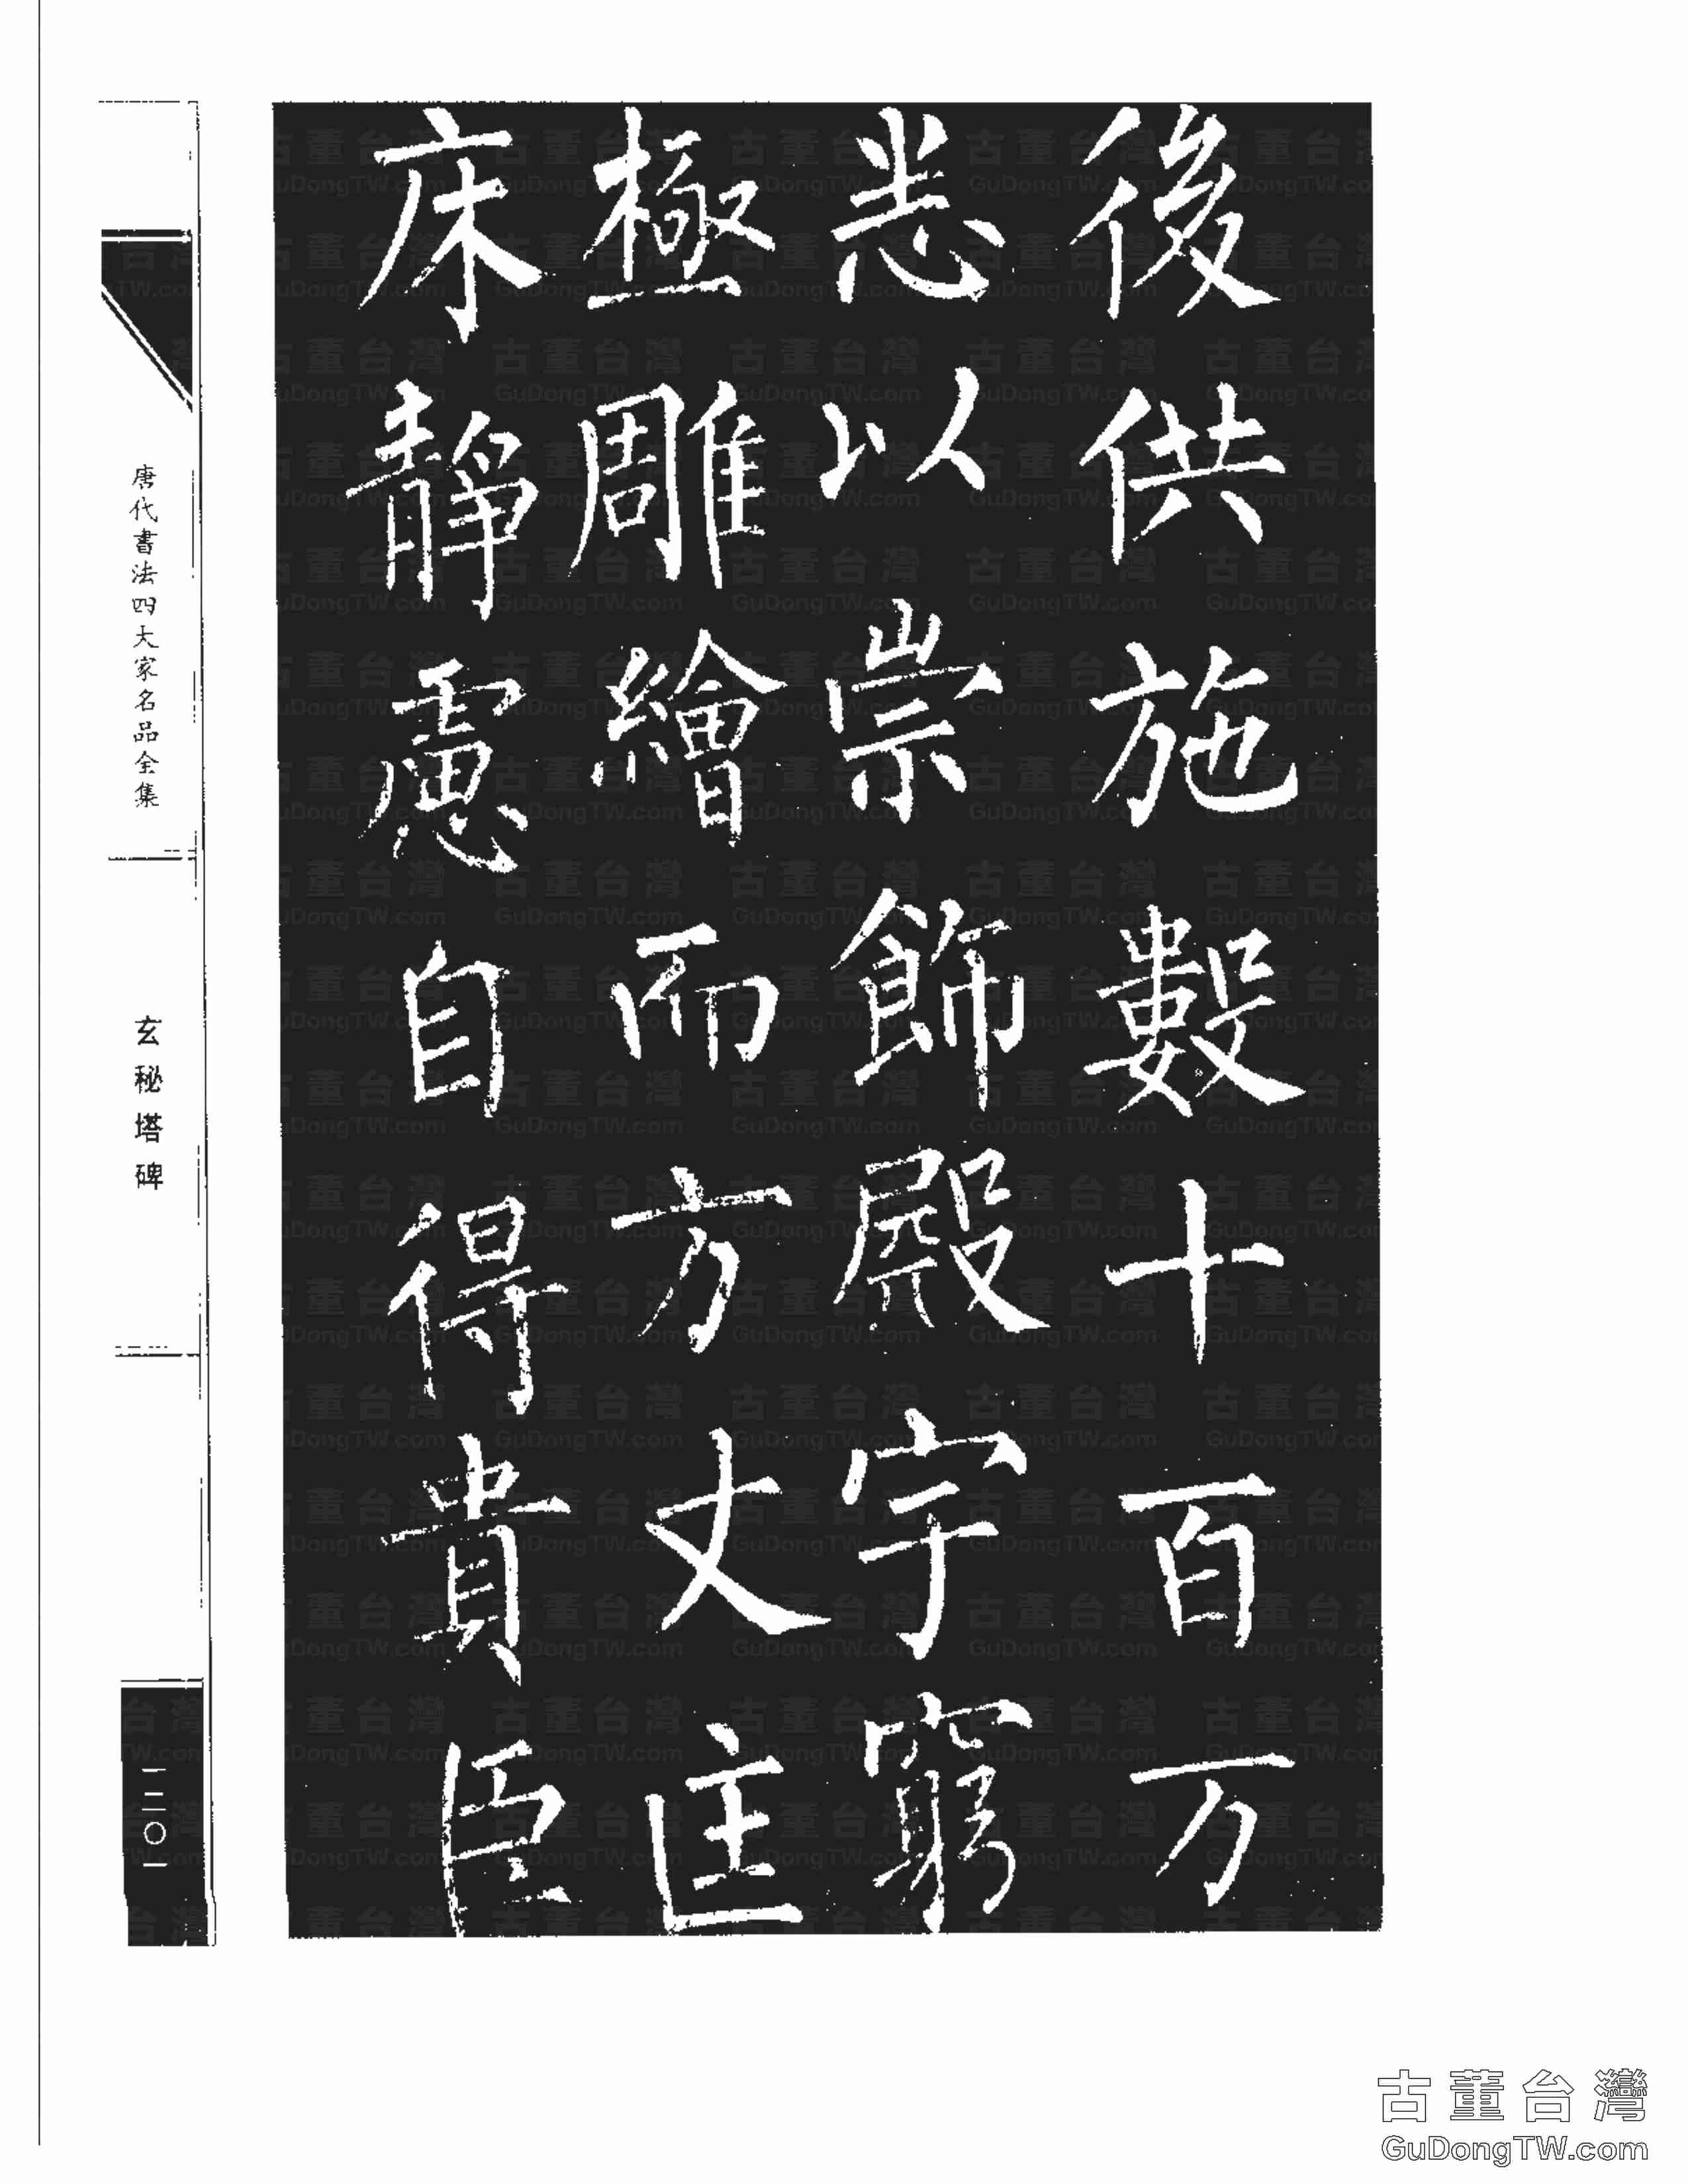 後供施數十百万
悉以崇飾殿宇窮
極雕繪而方丈匡
床靜慮自得貴臣
唐代書法四大家名品全集
玄秘塔碑
一二〇一
古董台灣
GuDongTW.com